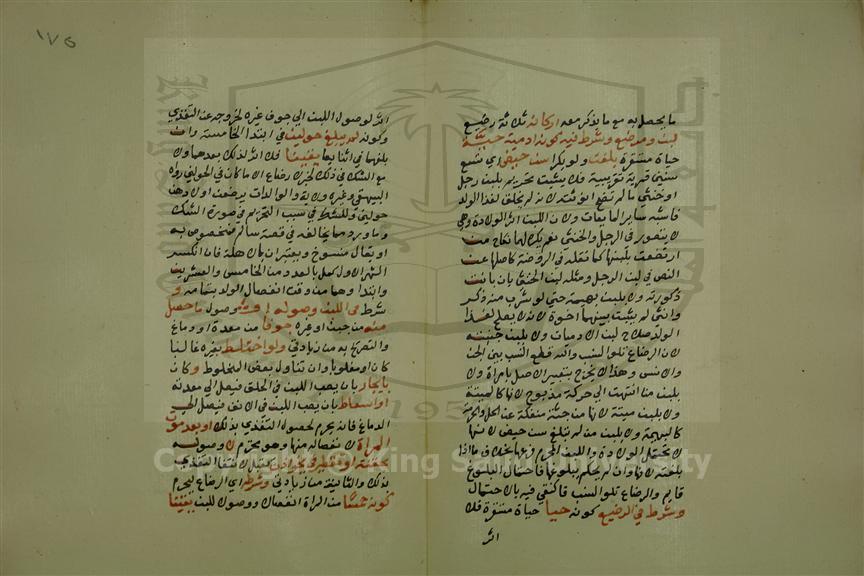 ما يحصل به مع ما يذكر معه اركانه ثلاثة رضيع
لبن ومرضع وشرط فيه كونه ادمية حيّة
حياة مستقرة بلغت ولو بكرا سن حيض اي تسع
سنين قمرية تقريبية فلا يثبت تحريم بلبن رجل
او خنثى ما لم تتضح انوثته لانه لم يخلق لغذا الولد
فاشبه ساير المايعات ولان اللبن اثر الولادة وهي
لا تتصور في الرجل والخنثى نعم يكره لهما نكاح من
ارتضعت بلبنهما كما نقله في الروضة كاصلها عن
النص في لبن الرجل ومثله لبن الخنثى بان بانت
ذكورته ولا بلبن بهيمة حتى لو شرب منه ذكر
وانثى لم يثبت بينهما اخوة لانه لا يصلح لغذا
الولد صلاح لبن الادميات ولا بلبن جنية
لان الرضاع تلو النسب والله قطع النسب بين الجن
والانس وهذا لا يخرج بتعبير الاصل بامراة ولا
بلبن من انتهت الى حركة مذبوح لانها كالميتة
ولا بلبن ميتة لانها من جثة منفكة عن الحل والحرمة
كالبهيمة ولا بلبن من لم تبلغ سن حيض لانها
لا تحتمل الولادة واللبن المحرم فرعها بخلاف ما اذا
بلغته لانها وان لم يحكم ببلوغها فاحتمال البلوغ
قايم والرضاع تلو النسب فاكتفي فيه بالاحتمال
وشرط في الرضيع كونه حيا حياة مستقرة فلا
اثر
١٧٥
اثر لوصول اللبن الى جوف غيره لخروجه عن التغذي
وكونه لم يبلغ حولين في ابتدا الخامسة وان
بلغهما في اثنايها يقينا فلا اثر لذلك بعدهما ولا
مع الشك في ذلك لخبر لا رضاع الا ما كان في الحولين رواه
البيهقي وغيره ولاية والوالدات يرضعن اولادهن
حولين وللشك في سبب التحريم في صورة الشك
وما ورد مما يخالفه في قصة سالم فمخصوص به
او يقال منسوخ ويعتبران بالاهلة فان انكسر
الشهر الاول كمل بالعدد من الخامس والعشرين
وابتداوهما من وقت انفصال الولد بتمامه و
شرط في اللبن وصوله او وصول ما حصل
منه من جبن او غيره جوفا من معدة او دماغ
والتصريح به من زيادتي ولو اختلط بغيره غالبا
كان او مغلوبا وان تناول بعض المخلوط وكان
بايجار بان يصب اللبن في الحلق فيصل الى معدته
او اسعاط بان يصب اللبن في الانف فيصل الى
الدماغ فانه يحرم لحصول التغذي بذلك او بعد موت
المراة لانفصاله منها وهو محترم لا وصوله
بحقنة او تقطير في نحو اذن لانتفا التغذي
بذلك والثانية من زيادتي وشرطه اي الرضاع ليحرم
كونه خمسا من المراة انفصالا ووصول للبن يقينا